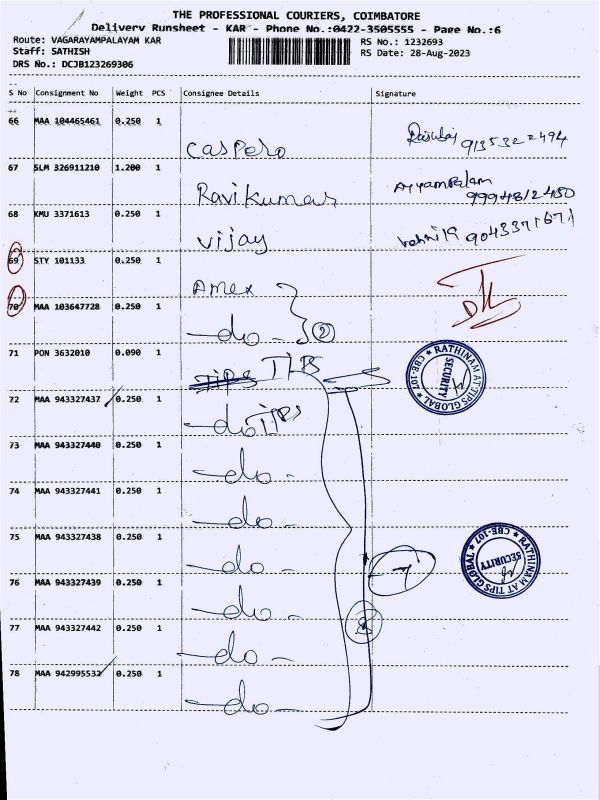 THE PROFESSIONAL COURIERS, COIMBATORE
Delivery Runsheet - KAR - Phone No.:0422-3505555 - Page No.:6
Route: VAGARAYAMPALAYAM KAR
RS No.: 1232693
Staff: SATHISH
RS Date: 28-Aug-2023
DRS No.: DCJB123269306
S No Consignment No Weight PCS Consignee Details Signature
66 MAA 104465461 0.250 1
Caspero 9135322494
67 SLM 326911210 1.200 1
Ravikumar Ayyampalam
9994812450
68 KMU 3371613 0.250 1
Vijay 9043371671
69 STY 101133 0.250 1
Amex
70 MAA 103647728 0.250 1
-do- 2
71 PON 3632010 0.090 1
TIPS TLB
RATHINAM AT TIPS GLOBAL ★ CBE-107 ★
SECURITY
72 MAA 943327437 0.250 1
-do TIPS
73 MAA 943327440 0.250 1
-do-
74 MAA 943327441 0.250 1
-do-
75 MAA 943327438 0.250 1
-do-
RATHINAM AT TIPS GLOBAL ★ CBE-107 ★
SECURITY
76 MAA 943327439 0.250 1
-do- 7
77 MAA 943327442 0.250 1
-do- 8
78 MAA 942995532 0.250 1
-do-